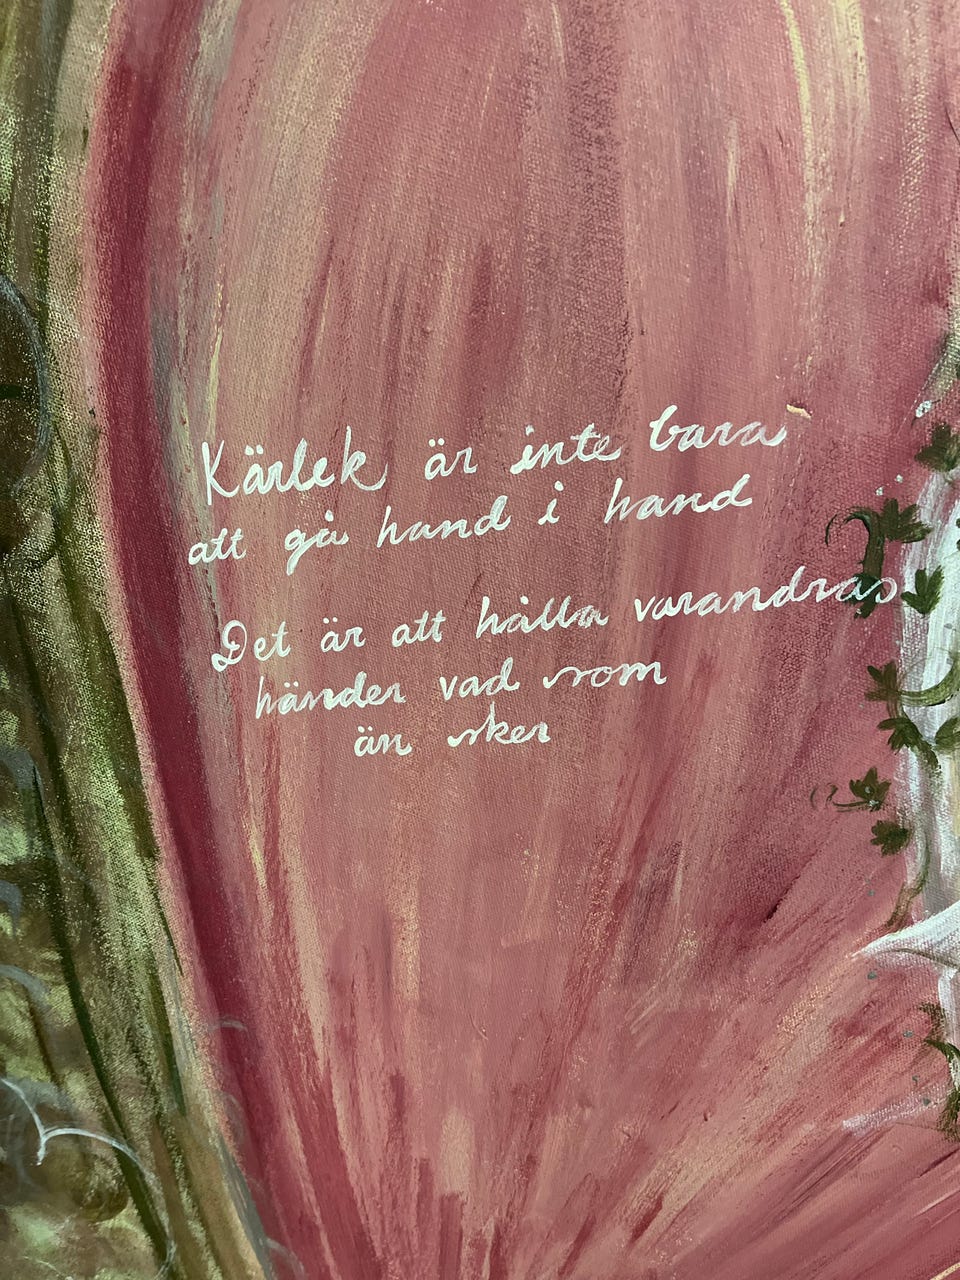 Kärlek är inte bara
att gå hand i hand
Det är att hålla varandras
händer vad som
än sker